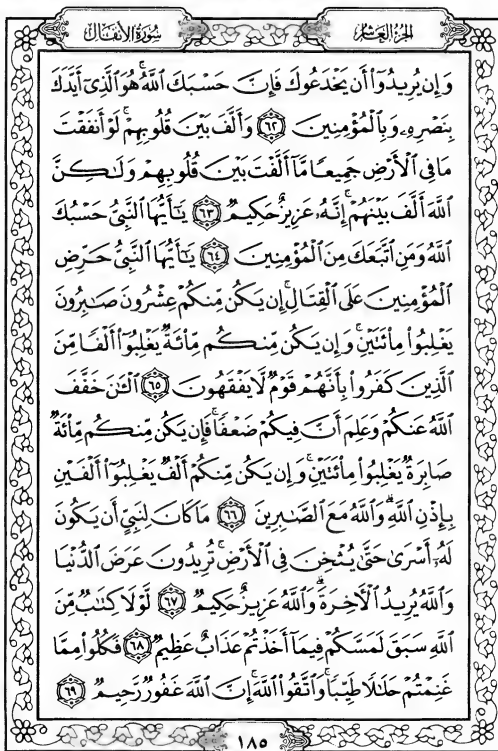 الجزء العاشر
سورة الأنفال
وَإِن يُرِيدُوٓا۟ أَن يَخْدَعُوكَ فَإِنَّ حَسْبَكَ ٱللَّهُ ۚ هُوَ ٱلَّذِىٓ أَيَّدَكَ
بِنَصْرِهِۦ وَبِٱلْمُؤْمِنِينَ ﴿٦٢﴾ وَأَلَّفَ بَيْنَ قُلُوبِهِمْ ۚ لَوْ أَنفَقْتَ
مَا فِى ٱلْأَرْضِ جَمِيعًا مَّآ أَلَّفْتَ بَيْنَ قُلُوبِهِمْ وَلَـٰكِنَّ
ٱللَّهَ أَلَّفَ بَيْنَهُمْ ۚ إِنَّهُۥ عَزِيزٌ حَكِيمٌ ﴿٦٣﴾ يَـٰٓأَيُّهَا ٱلنَّبِىُّ حَسْبُكَ
ٱللَّهُ وَمَنِ ٱتَّبَعَكَ مِنَ ٱلْمُؤْمِنِينَ ﴿٦٤﴾ يَـٰٓأَيُّهَا ٱلنَّبِىُّ حَرِّضِ
ٱلْمُؤْمِنِينَ عَلَى ٱلْقِتَالِ ۚ إِن يَكُن مِّنكُمْ عِشْرُونَ صَـٰبِرُونَ
يَغْلِبُوا۟ مِا۟ئَتَيْنِ ۚ وَإِن يَكُن مِّنكُم مِّا۟ئَةٌ يَغْلِبُوٓا۟ أَلْفًا مِّنَ
ٱلَّذِينَ كَفَرُوا۟ بِأَنَّهُمْ قَوْمٌ لَّا يَفْقَهُونَ ﴿٦٥﴾ ٱلْـَٔـٰنَ خَفَّفَ
ٱللَّهُ عَنكُمْ وَعَلِمَ أَنَّ فِيكُمْ ضَعْفًا ۚ فَإِن يَكُن مِّنكُم مِّا۟ئَةٌ
صَابِرَةٌ يَغْلِبُوا۟ مِا۟ئَتَيْنِ ۚ وَإِن يَكُن مِّنكُمْ أَلْفٌ يَغْلِبُوٓا۟ أَلْفَيْنِ
بِإِذْنِ ٱللَّهِ ۗ وَٱللَّهُ مَعَ ٱلصَّـٰبِرِينَ ﴿٦٦﴾ مَا كَانَ لِنَبِىٍّ أَن يَكُونَ
لَهُۥٓ أَسْرَىٰ حَتَّىٰ يُثْخِنَ فِى ٱلْأَرْضِ ۚ تُرِيدُونَ عَرَضَ ٱلدُّنْيَا
وَٱللَّهُ يُرِيدُ ٱلْـَٔاخِرَةَ ۗ وَٱللَّهُ عَزِيزٌ حَكِيمٌ ﴿٦٧﴾ لَّوْلَا كِتَـٰبٌ مِّنَ
ٱللَّهِ سَبَقَ لَمَسَّكُمْ فِيمَآ أَخَذْتُمْ عَذَابٌ عَظِيمٌ ﴿٦٨﴾ فَكُلُوا۟ مِمَّا
غَنِمْتُمْ حَلَـٰلًا طَيِّبًا ۚ وَٱتَّقُوا۟ ٱللَّهَ ۚ إِنَّ ٱللَّهَ غَفُورٌ رَّحِيمٌ ﴿٦٩﴾
١٨٥